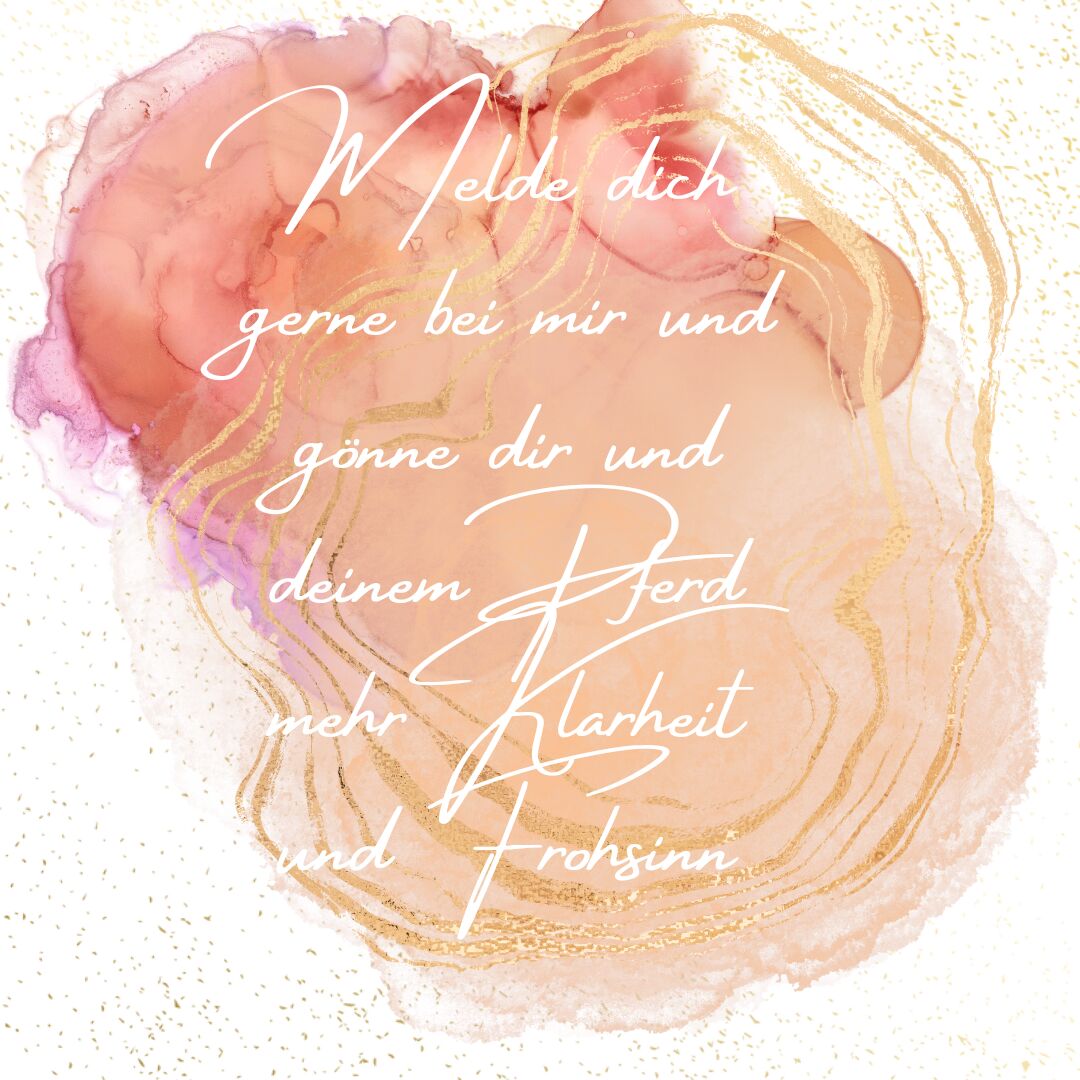 Melde dich
gerne bei mir und
gönne dir und
deinem Pferd
mehr Klarheit
und Frohsinn